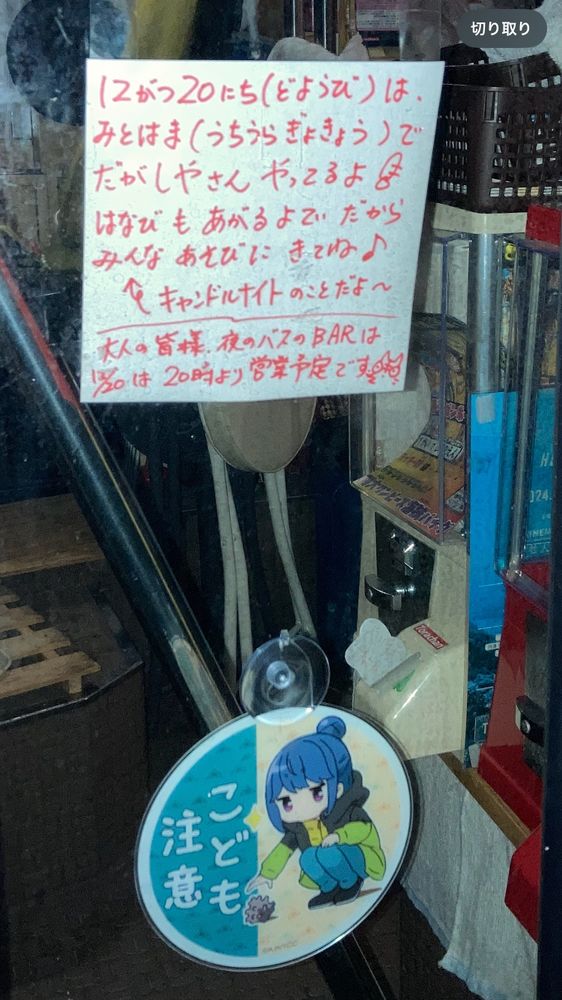 切り取り
12がつ20にち(どようび)は、
みとはま(うちうらぎょきょう)で
だがしやさん やってるよ
はなびも あがるよてい だから
みんな あそびに きてね♪
キャンドルナイトのことだよ～
大人の皆様、夜のバスのBARは
12/20は 20時より営業予定です
こども
注意